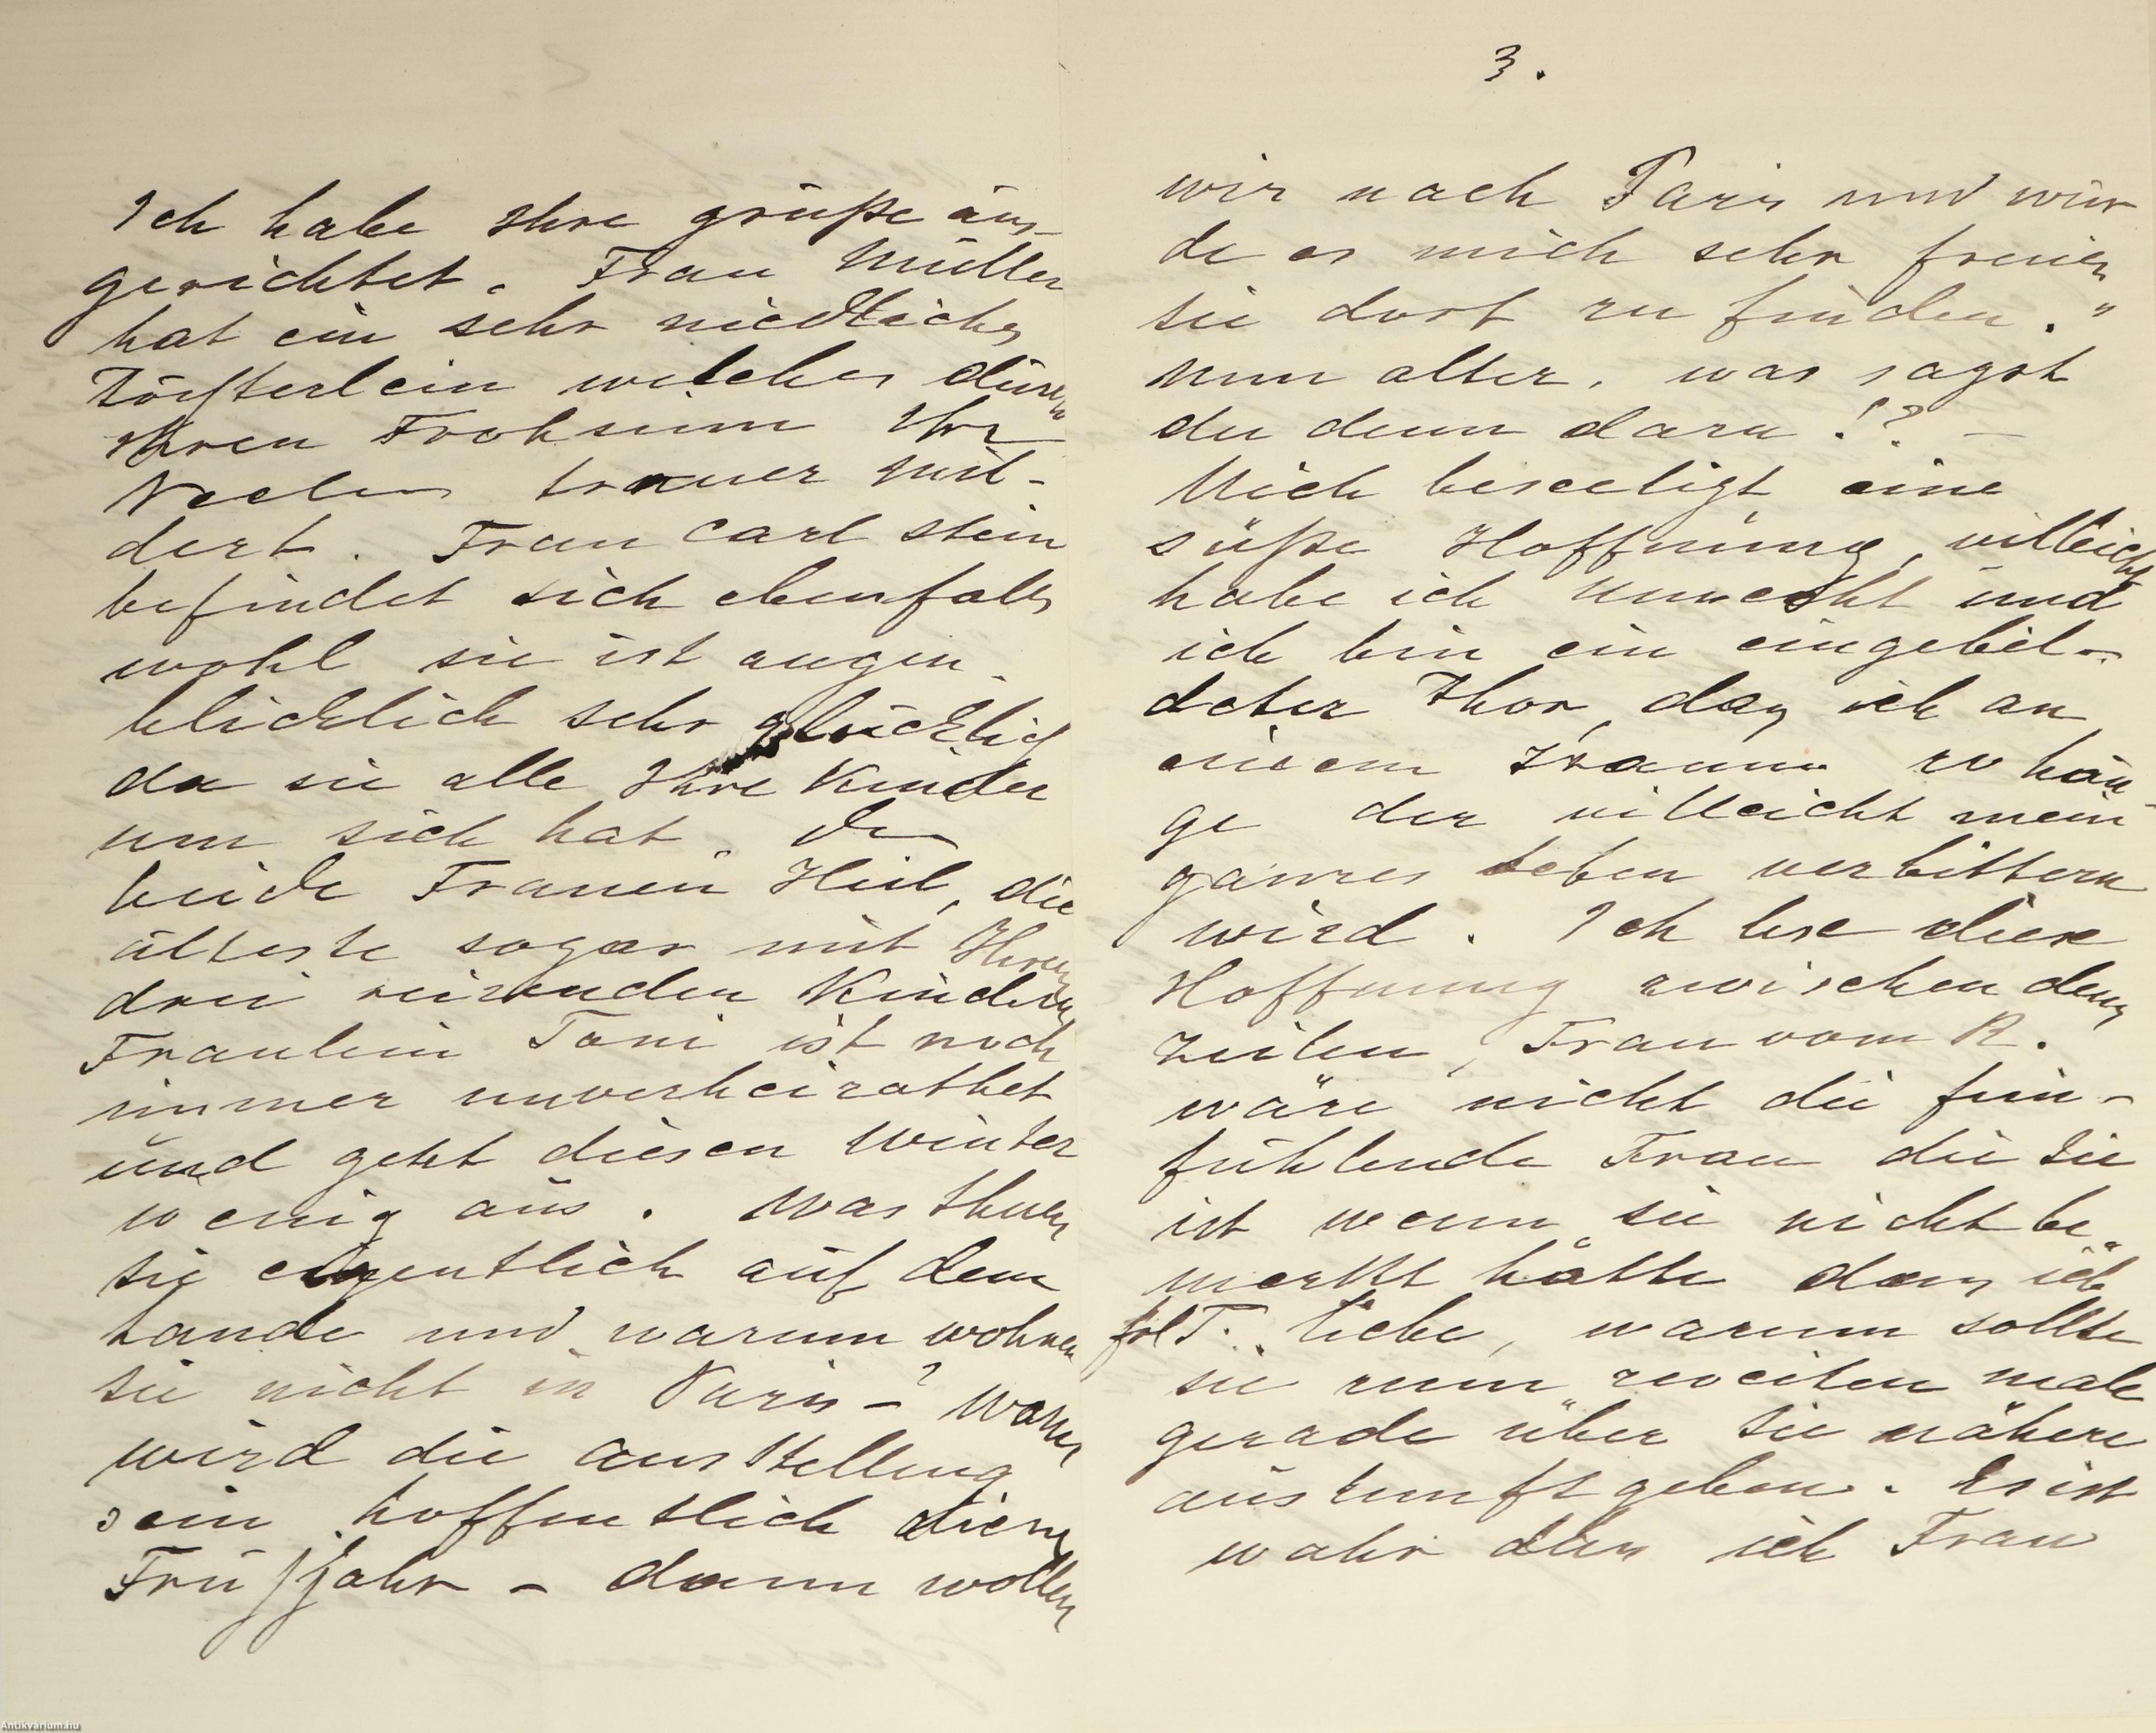 Ich habe Ihre grüße aus-
gerichtet. Frau Müller
hat ein sehr niedliches
Töchterlein welches durch
Ihren Frohsinn Ihr
trauer mil-
dert. Frau Carl Stein
befindet sich ebenfalls
wohl sie ist augen-
blicklich sehr glücklich
da sie alle Ihre Kinder
um sich hat. Die
beide Frauen Heil, die
älteste sogar mit Ihren
drei reizenden Kindern
Fraulein Toni ist noch
immer unverheirathet
und geht diesen Winter
wenig aus. Was thuen
sie eigentlich auf dem
Lande und warum wohnen
sie nicht in Paris-? Wann
wird die ausstellung
sein hoffentlich dieses
Frühjahr - dann wollen
3.
wir nach Paris und wür
de es mich sehr freuen
sie dort zu finden."
nun alter, was sagst
du denn dazu!? -
Mich beseeligt eine
süße Hoffnung, villeicht
habe ich Unrecht und
ich bin ein eingebil-
deter Thor, daß ich an
einem Traume so hän-
ge der villeicht mein
ganzes Leben verbittern
wird. Ich lese diese
Hoffnung zwischen den
Zeilen, Frau vom R.
wäre nicht die fein-
fühlende Frau die sie
ist wenn sie nicht be-
merkt hätte dass ich
frl T. liebe, warum sollte
sie zum zweiten male
gerade über sie nähere
auskunft geben. Es ist
wahr dass ich Frau
Antikvarium.hu